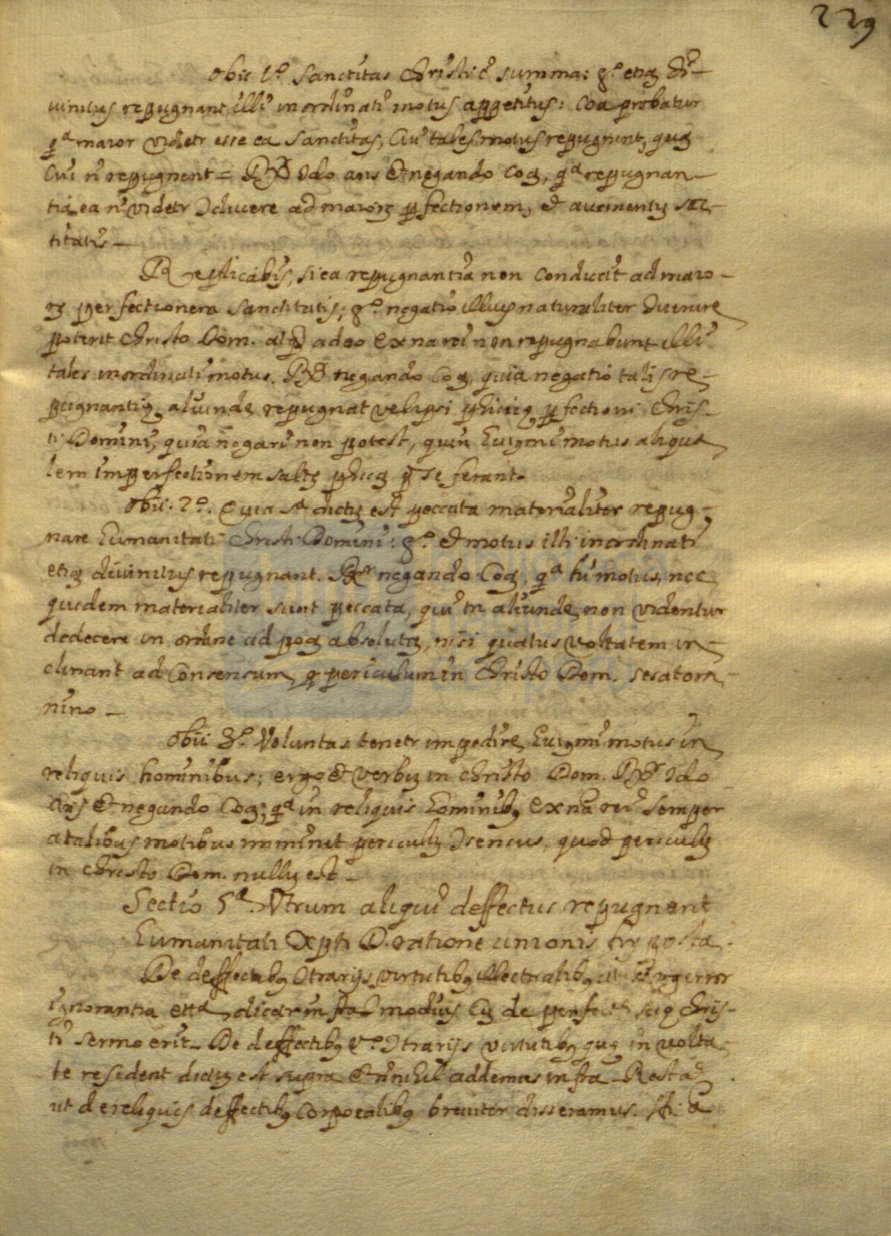 229
obiic 1.º Sanctitas Christi è summa: g.º etiã di-
vinitus repugnant illi inordinati motus appetitus: Coa probatur
q.ª maior videtr esse ea Sanctitas, Cui tales motus repugnent, quã
Cui ñ repugnent = Rx ɔ̃do ans et negando Coã, q.ª repugnan-
tia ea ñ videtr ɔ̃ducere ad maiorẽ perfectionem, et aucmentũ sãc-
titatis _
Replicabis, si ea repugnantia non conducit ad maio-
rẽ perfectionem Sanctitatis; g.º negatio illius naturaliter
poterit Christo Dom. adeo ex na rei non repugnabunt illi
tales inordinati motus. Rx negando Coã, quia negatio talis re-
pugnantiæ aliunde repugnat vel ipsi phicæ perfectioni Chris-
ti Domini, quia negari non potest, quin huiỹmi motus aliqua
lem imperfectionem saltẽ phicã p se ferant.
obiic. 2.º. Quia sˡ dictũ est peccata materialiter repug-
nare humanitati Christi Domini: g.º et motus illi inordinati
etiã divinitus repugnant. Rx negando Coã, q.ª hi motus, nec
quidem materialiter sunt peccata, qui tñ aliunde non videntur
dedecere in ordine ad poã absolutã, nisi quatus volũtatem in-
clinant ad Consensum, q periculum in Christo Dom. secat om-
nino _
obiic 3.º Voluntas tenetr impedire huiỹmi motus in
reliquis hominibus; ergo et verbũ in Christo Dom. Rx ɔ̃do
ans et negando Coã; q.ª in reliquis hominibʒ ex nã rei semper
a talibus motibus imminet periculũ ɔ̃sensus, quod periculũ
in Christo Dom. nullũ est _
Sectio 5.ª Utrum aliqui deffectus repugnent
humanitati Xpti D. ratione unionis hyposta.
De deffectibʒ ɔ̃trarijs virtutibʒ ĩllectualibʒ error
ignorantia etta, dicam infra Cũ de perfectẽ sciã Chris-
ti sermo erit _ De deffectibʒ v.º ɔ̃trarijs virtutibʒ quæ in volũta-
te resident dictũ est supra et nihil addemus infra _ Restat
ut de reliquis deffectibʒ Corporalibʒ breviter disseramus.